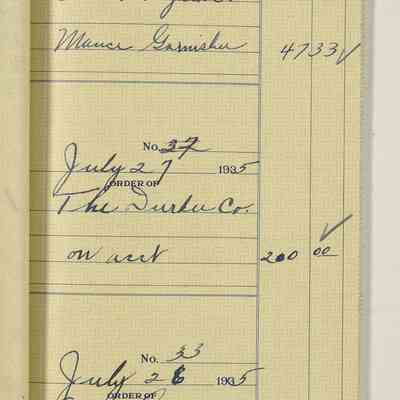 4733 ✓
No. 32
July 27 1935
ORDER OF
The Durku Co.
on acct 200 00 ✓
No. 33
July 26 1935
ORDER OF